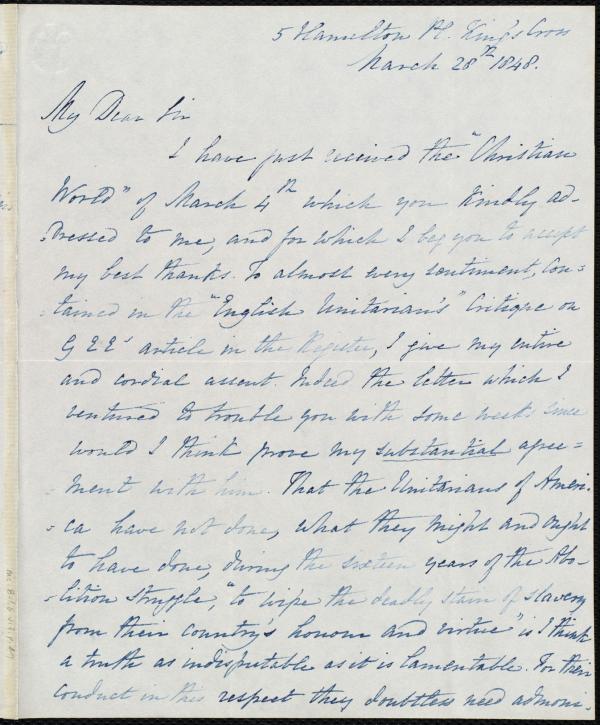 5 Hamilton Pl. King's Cross
March 28th 1848.
My Dear Sir
I have just received the "Christian
World" of March 4th which you kindly ad-
-dressed to me, and for which I beg you to accept
my best thanks. To almost every sentiment, con=
=tained in the "English Unitarian's" Critique on
G E E's article in the Register, I give my entire
and cordial assent. Indeed the letter which I
ventured to trouble you with some weeks since
would I think prove my substantial agree=
=ment with him. That the Unitarians of Ameri-
-ca have not done, what they might and ought
to have done, during the sixteen years of the Abo-
-lition struggle, "to wipe the deadly stain of slavery
from their country's honour and virtue" is I think
a truth as indisputable as it is lamentable. For their
conduct in this respect they doubtless need admoni-